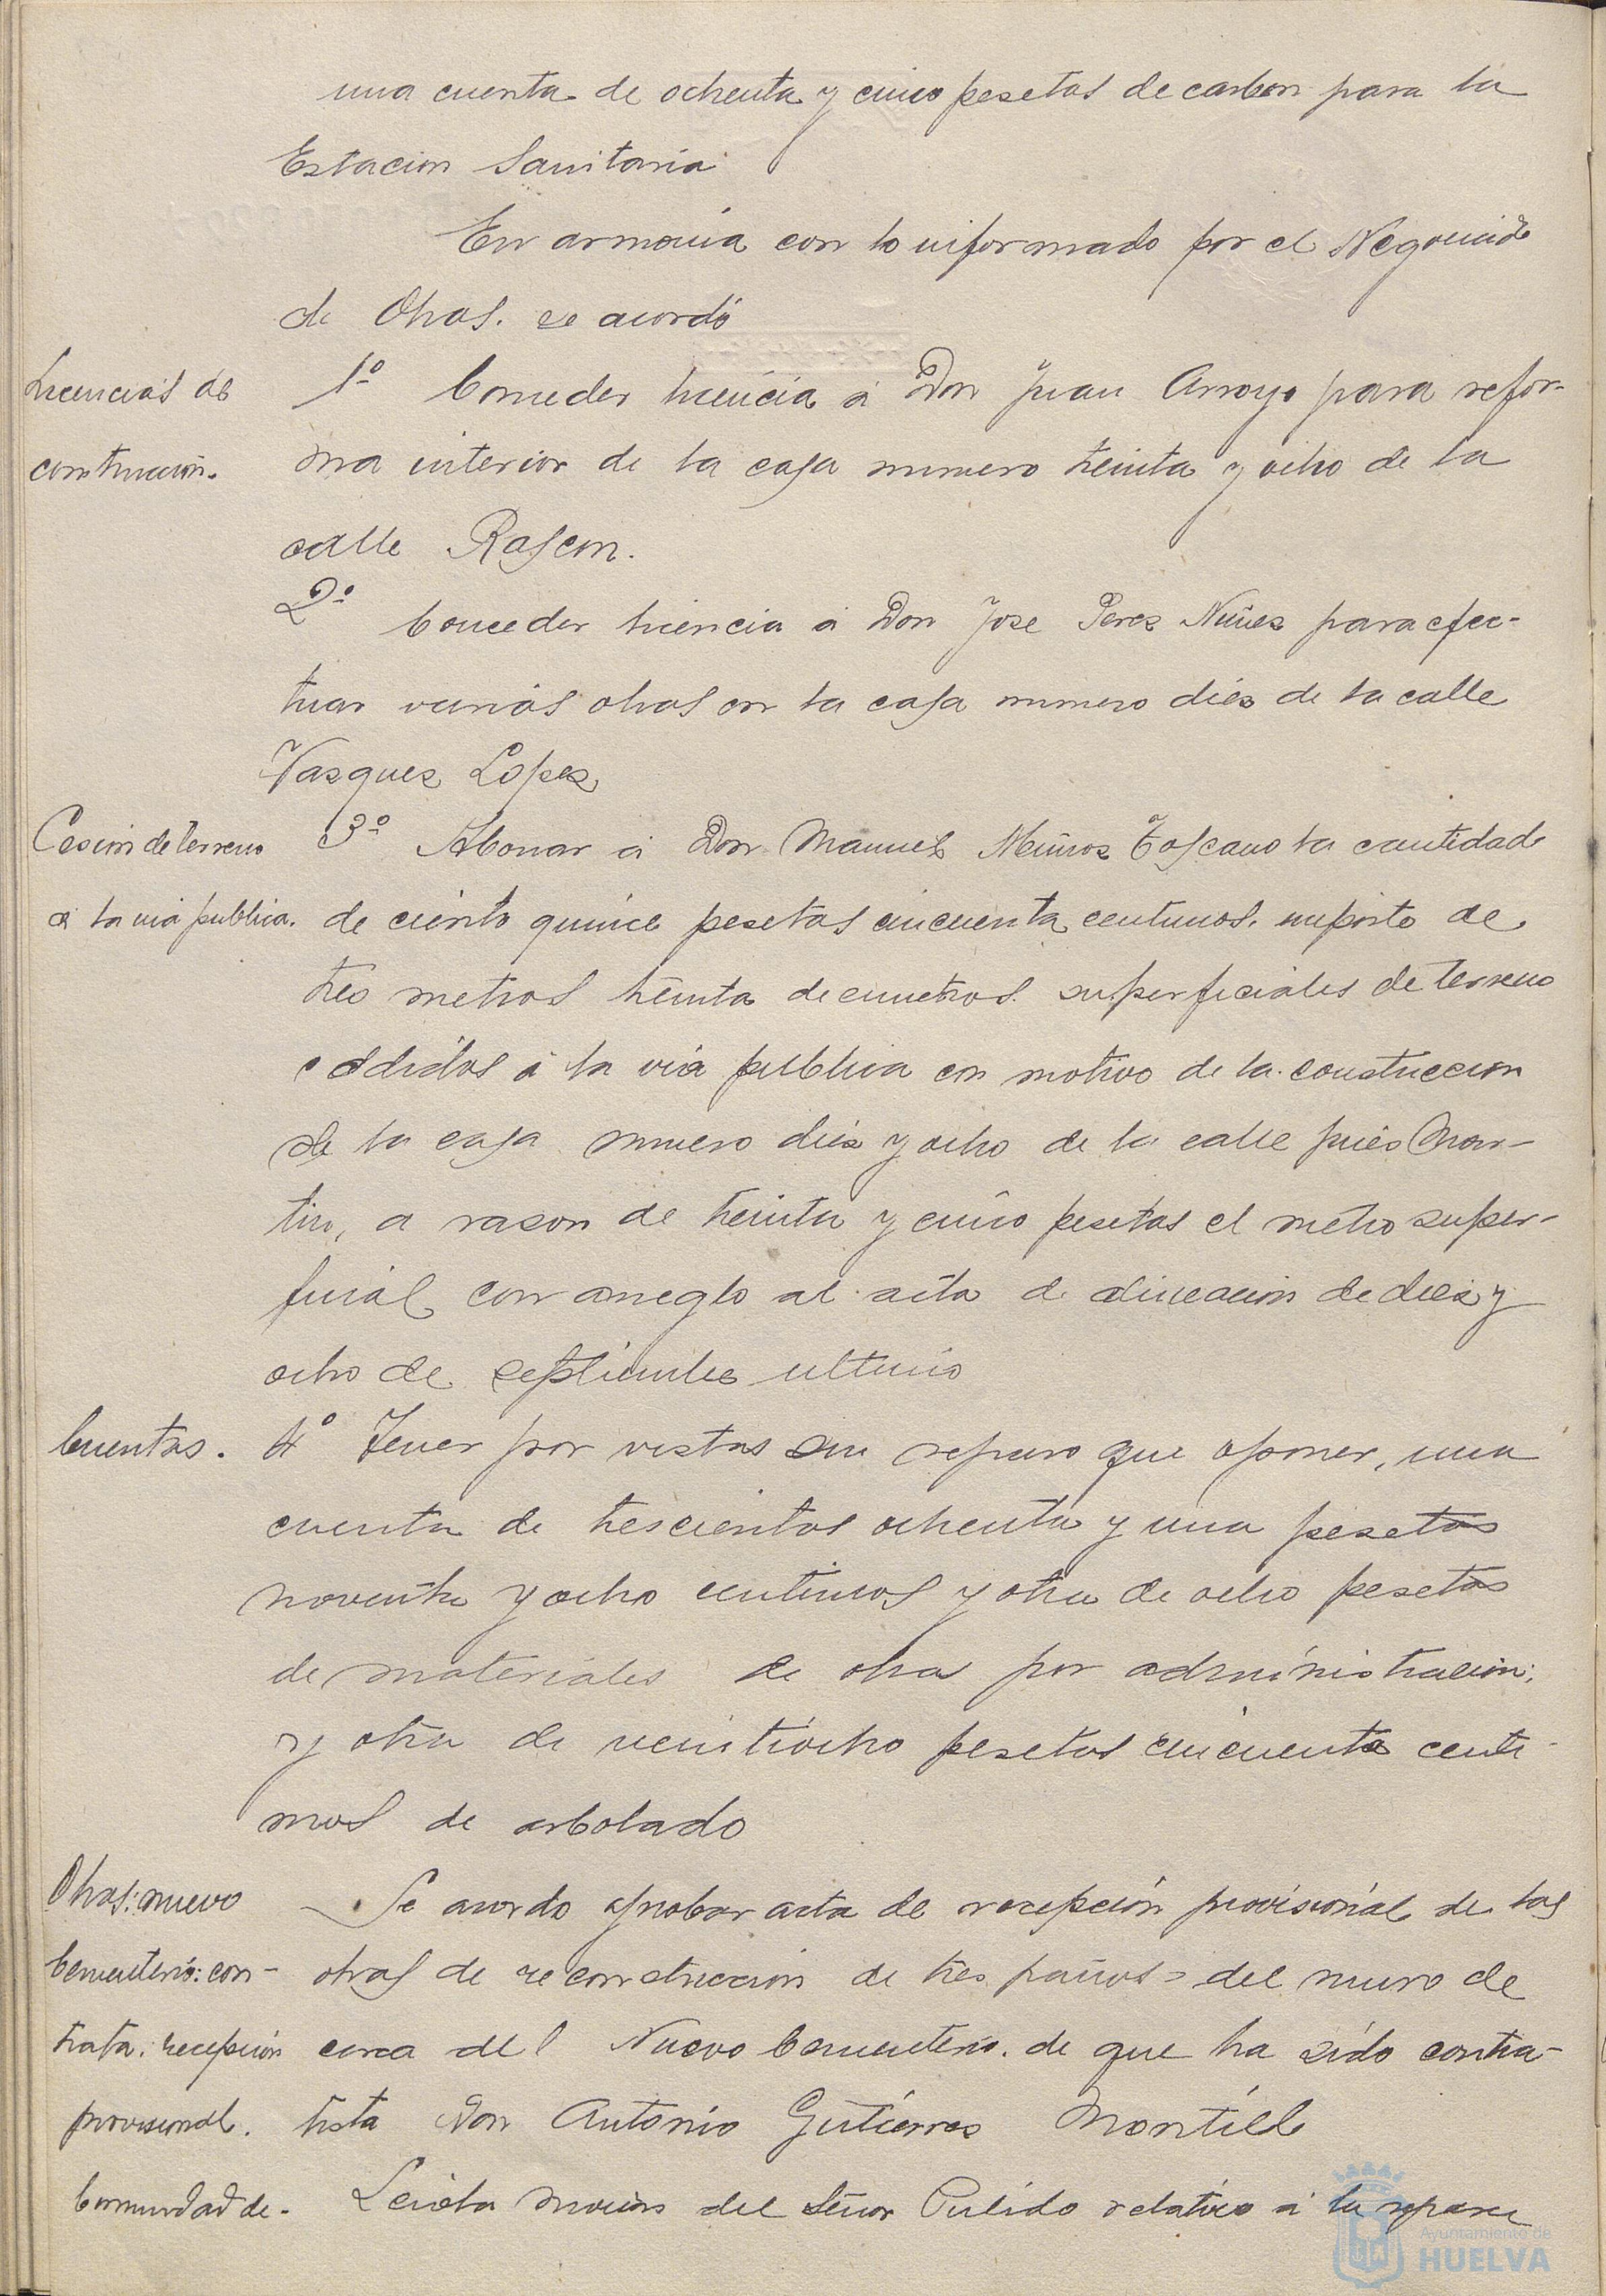 una cuenta de ochenta y cinco pesetas de carbon para la
Estacion Sanitaria
En armonia con lo informado por el Negociado
de Obras. se acordó
Licencias de
construcción.
1º Conceder licencia á Don Juan Arroyo para refor-
ma interior de la casa numero treinta y ocho de la
calle Rascon.
2º Conceder licencia á Don Jose Peres Nuñes para efec-
tuar varias obras en la casa numero dies de la calle
Vasques Lopes
Cesion de terreno
á la via publica.
3º Abonar á Don Manuel Muños Toscano la cantidad
de ciento quince pesetas cincuenta centimos. importe de
tres metros treinta decimetros superficiales de terreno
cedidos á la via publica con motivo de la construccion
de la casa numero dies y ocho de la calle Ginés Mar-
tin, a rason de treinta y cinco pesetas el metro super-
ficial con arreglo al acta de alineacion de dies y
ocho de septiembre ultimo
Cuentas.
4º Tener por vistas sin reparo que oponer, una
cuenta de trescientas ochenta y una pesetas
noventa y ocho centimos y otra de ocho pesetas
de materiales de obra por administracion;
y otra de veintiocho pesetas cincuenta centi-
mos de arbolado
Obras: nuevo
Cementerio: con-
trata: recepción
provisional.
Se acordo aprobar acta de recepción provisional de las
obras de reconstruccion de tres paños del muro de
cerca del Nuevo Cementerio. de que ha sido contra-
tista Don Antonio Gutierres Montiel
Comunidad de-
Leida mocion del Señor Pulido relativa á la repara
Ayuntamiento de
HUELVA